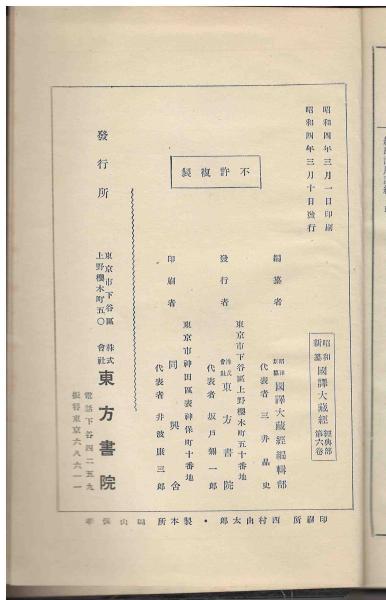 昭和四年三月一日印刷
昭和四年三月十日發行
昭和新纂 國譯大藏經 經典部 第六卷
不許複製
編纂者 昭和新纂 國譯大藏經編輯部
代表者 三井晶史
東京市下谷區上野櫻木町五十番地
發行者 株式會社 東方書院
代表者 坂戸彌一郎
東京市神田區表神保町十番地
印刷者 同興舍
代表者 井波康三郎
發行所
東京市下谷區
上野櫻木町五〇
株式會社 東方書院
電話下谷四二五九
振替東京六八六一一
印刷所 西村由太郎・製本所